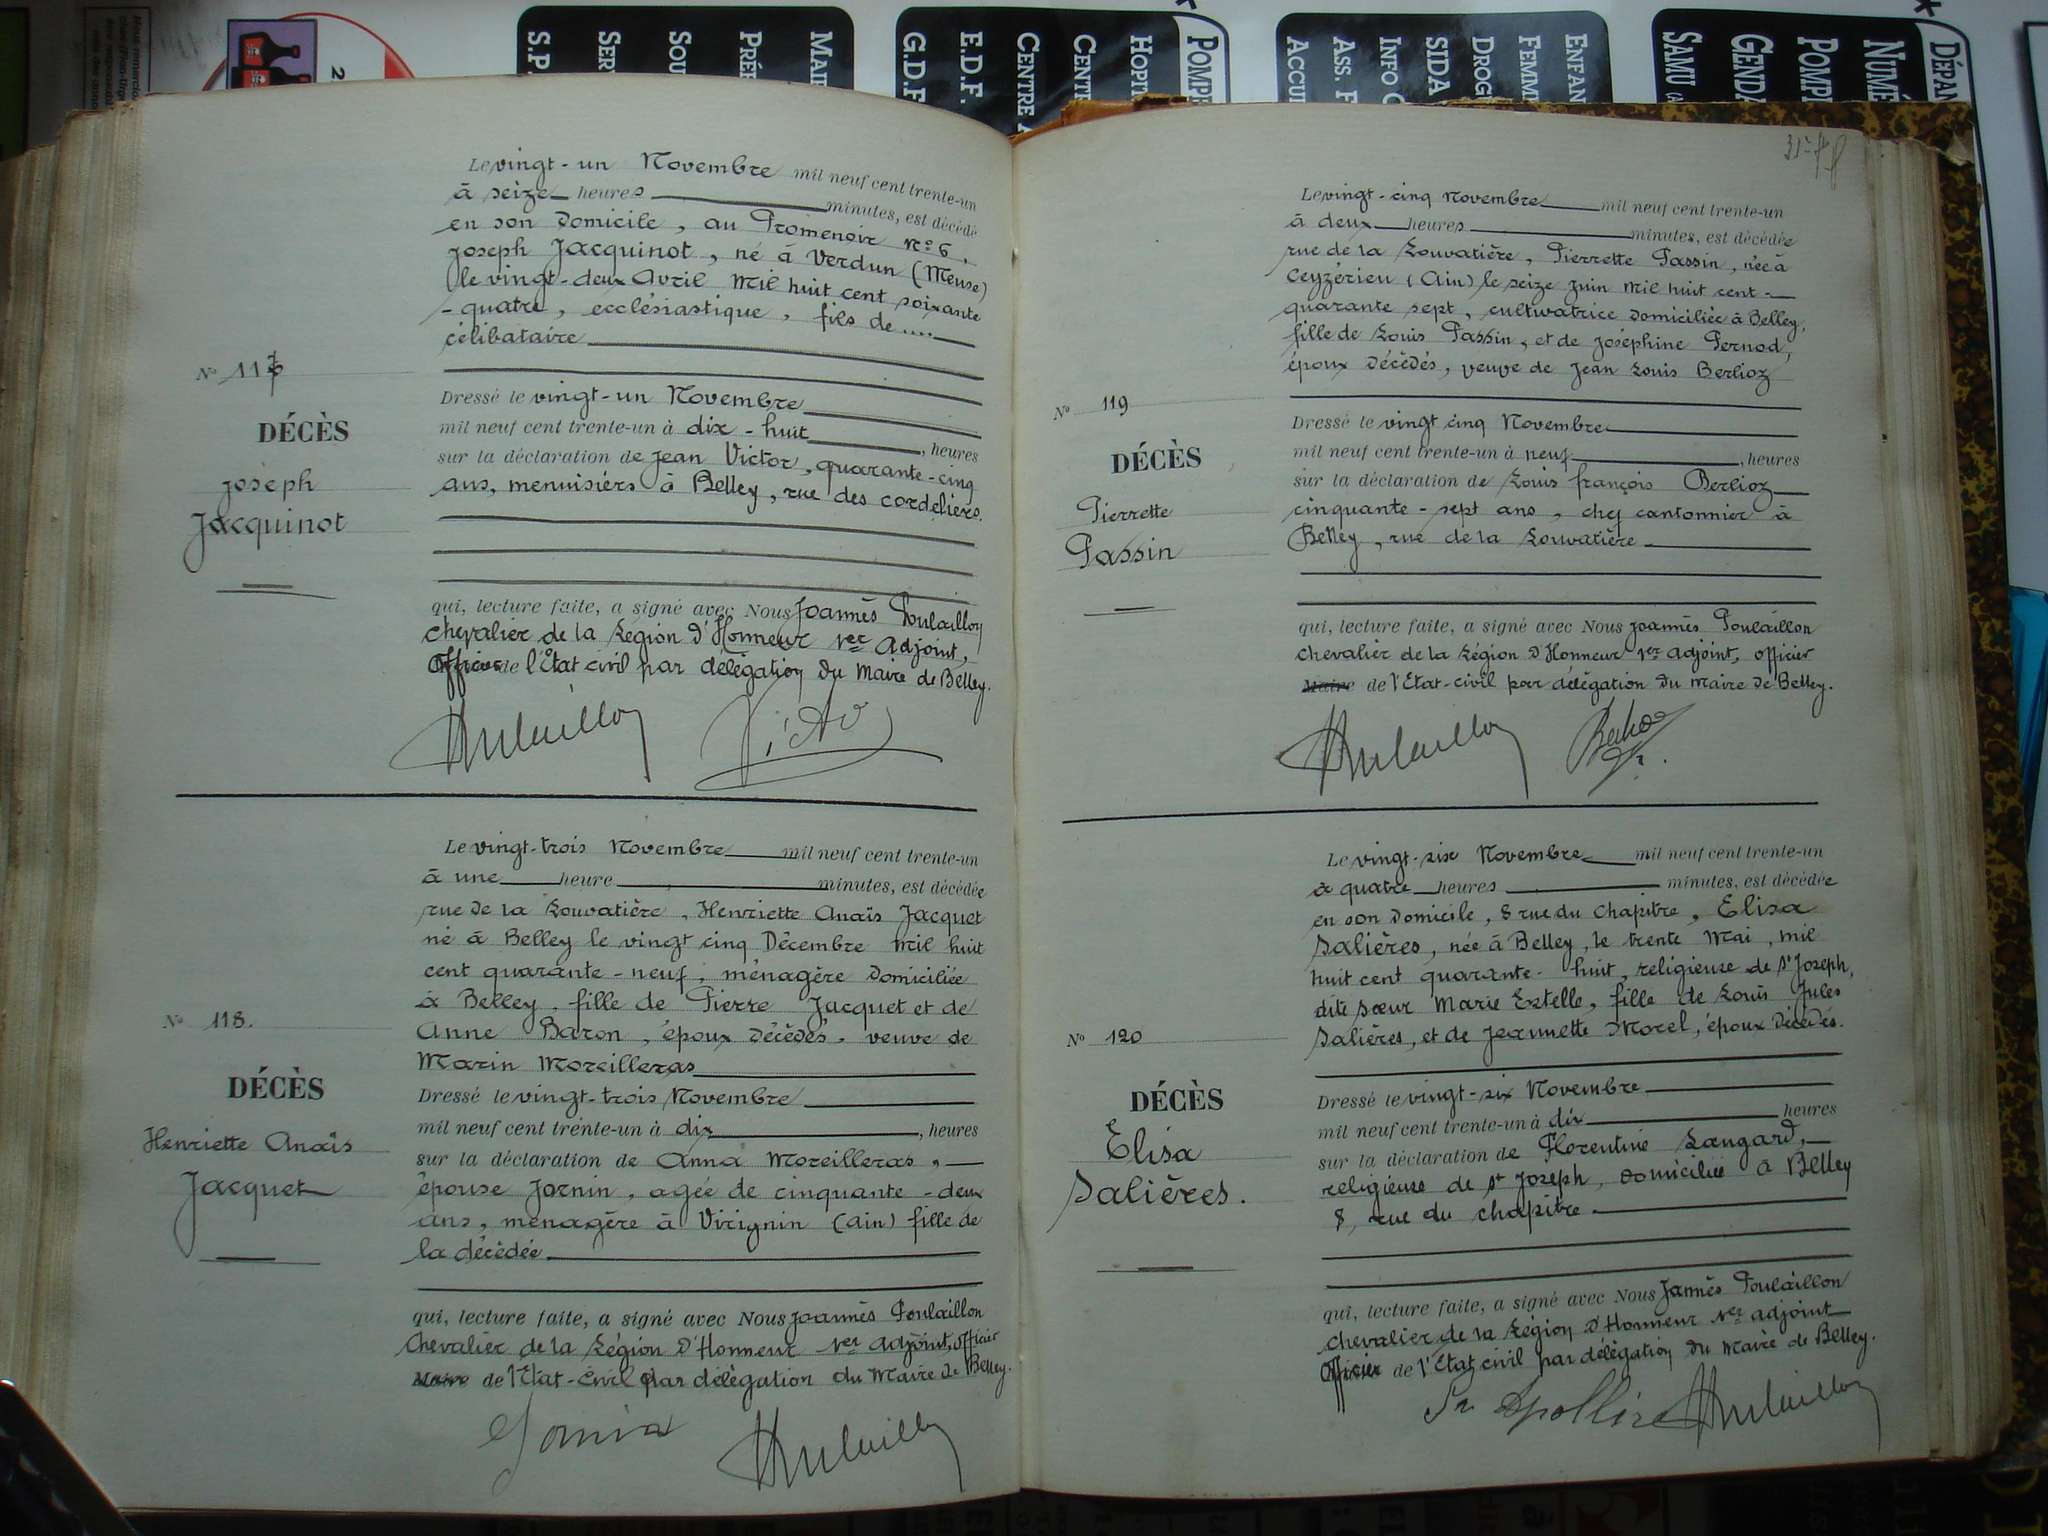 S.P.
SER
SOU
PRÉF
MAI
G.D.F
E.D.F.
CENTRE
CENT
HOPIT
POMPE
ACCU
ASS. F
INFO
SIDA
DROG
FEMM
ENFAN
SAMU
GENDA
POMPI
NUMÉ
DÉPAN
Le vingt-un Novembre mil neuf cent trente-un
à seize heures minutes, est décédé
en son domicile, au Promenoir n° 6,
Joseph Jacquinot, né à Verdun (Meuse)
le vingt-deux Avril mil huit cent soixante
-quatre, ecclésiastique, fils de ....
célibataire
N° 117
DÉCÈS
Joseph
Jacquinot
Dressé le vingt-un Novembre
mil neuf cent trente-un à dix-huit, heures
sur la déclaration de Jean Victor, quarante-cinq
ans, menuisiers à Belley, rue des cordeliers.
qui, lecture faite, a signé avec Nous Joannès Poulaillon
chevalier de la Légion d'Honneur 1er Adjoint,
officier de l'État civil par délégation du Maire de Belley.
Le vingt-trois Novembre mil neuf cent trente-un
à une heure minutes, est décédée
rue de la Louvatière, Henriette Anaïs Jacquet
né à Belley le vingt cinq Décembre mil huit
cent quarante-neuf, ménagère domiciliée
à Belley, fille de Pierre Jacquet et de
Anne Baron, époux décédés, veuve de
Marin Moreilleras
N° 118.
DÉCÈS
Henriette Anaïs
Jacquet
Dressé le vingt-trois Novembre
mil neuf cent trente-un à dix, heures
sur la déclaration de Anna Moreilleras,
épouse Jornin, agée de cinquante-deux
ans, ménagère à Virignin (ain) fille de
la décédée
qui, lecture faite, a signé avec Nous Joannès Poulaillon
Chevalier de la Légion d'Honneur 1er adjoint, officier
Maire de l'Etat-civil par délégation du Maire de Belley.
Le vingt-cinq Novembre mil neuf cent trente-un
à deux heures minutes, est décédée
rue de la Louvatière, Pierrette Passin, née à
Ceyzérieu (Ain) le seize juin mil huit cent-
quarante sept, cultivatrice domiciliée à Belley,
fille de Louis Passin, et de Joséphine Pernod,
époux décédés, veuve de Jean Louis Berlioz
N° 119
DÉCÈS
Pierrette
Passin
Dressé le vingt cinq Novembre
mil neuf cent trente-un à neuf, heures
sur la déclaration de Louis françois Berlioz
cinquante-sept ans, chef cantonnier à
Belley, rue de la Louvatière
qui, lecture faite, a signé avec Nous Joannès Poulaillon
chevalier de la Légion d'Honneur 1er adjoint, officier
Maire de l'Etat-civil par délégation du Maire de Belley.
Le vingt-six Novembre mil neuf cent trente-un
à quatre heures minutes, est décédée
en son domicile, 8 rue du Chapitre, Elisa
Salières, née à Belley, le trente Mai, mil
huit cent quarante-huit, religieuse de St Joseph,
dite sœur Marie Estelle, fille de Louis Jules
Salières, et de Jeannette Morel, époux décédés.
N° 120
DÉCÈS
Elisa
Salières.
Dressé le vingt-six Novembre
mil neuf cent trente-un à dix heures
sur la déclaration de Florentine Langard,
religieuse de St Joseph, domiciliée à Belley
8, rue du chapitre
qui, lecture faite, a signé avec Nous Jannès Poulaillon
chevalier de la Légion d'Honneur 1er adjoint
officier de l'État civil par délégation du Maire de Belley.